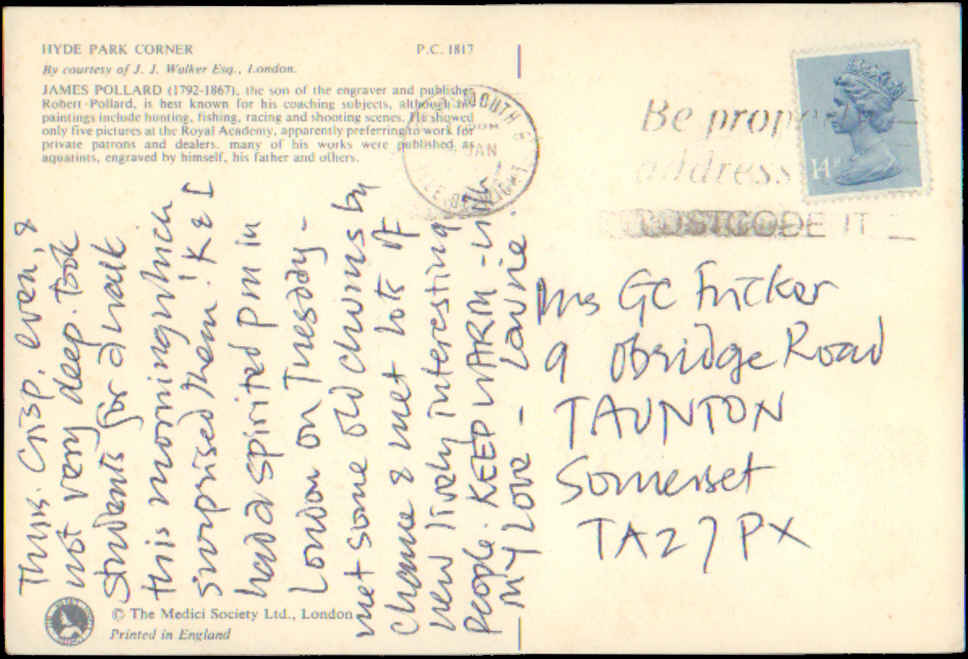 HYDE PARK CORNER
P.C. 1817
By courtesy of J. J. Walker Esq., London.
JAMES POLLARD (1792-1867), the son of the engraver and publisher
Robert Pollard, is best known for his coaching subjects, although his
paintings include hunting, fishing, racing and shooting scenes. He showed
only five pictures at the Royal Academy, apparently preferring to work for
private patrons and dealers. many of his works were published as
aquatints, engraved by himself, his father and others.
JAN
ISLE OF WIGHT
Be properly
address
POSTCODE IT
14P
Thurs. Crisp, even, &
not very deep. Took
students for a walk
this morning which
surprised them. K & I
had a spirited pm in
London on Tuesday -
met some old chums by
chance & met lots of
new lively interesting
people. KEEP WARM - with
my love - Lawrie.
Mrs GC Fricker
9 Obridge Road
TAUNTON
Somerset
TA2 7PX
© The Medici Society Ltd., London
Printed in England